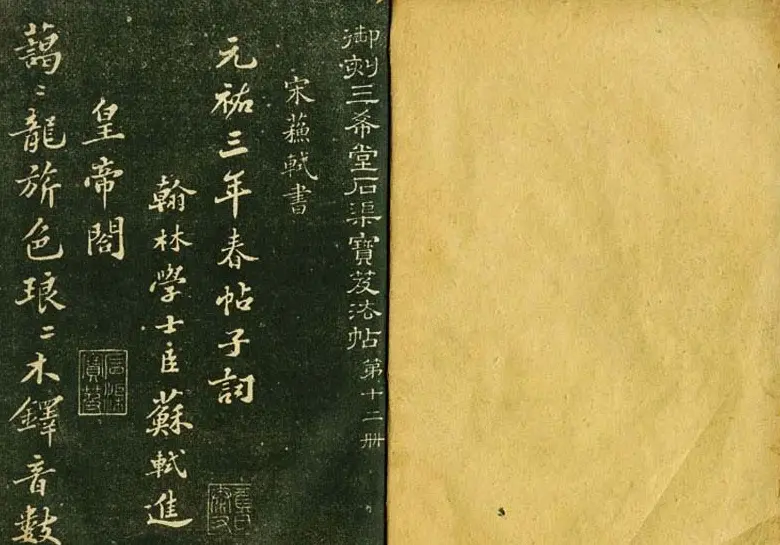 御刻三希堂石渠寶笈法帖 第十二冊
宋蘇軾書
元祐三年春帖子詞
翰林學士臣蘇軾進
皇帝閣
藹〻龍旂色琅〻木鐸音數